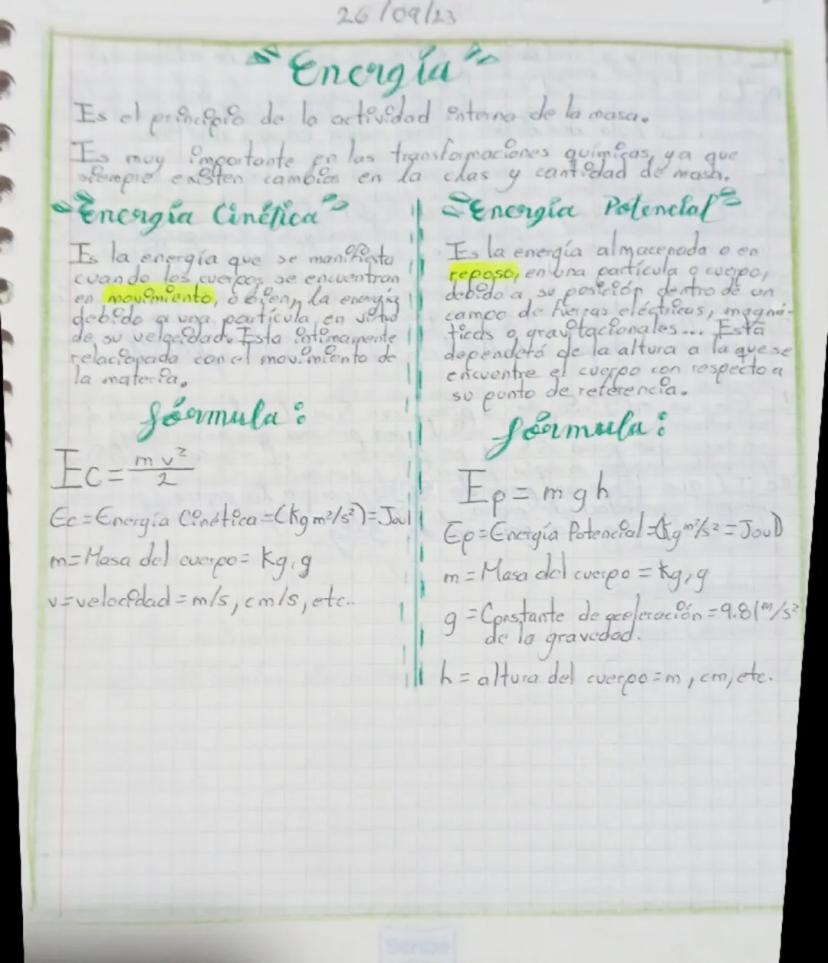 26/09/23
"Energía"
Es el principio de la actividad interna de la masa.
Es muy importante en las transformaciones químicas, ya que
siempre existen cambios en la clas y cantidad de masa.
"Energía Cinética"
Es la energía que se manifiesta
cuando los cuerpos se encuentran
en movimiento, o bien, la energía
debido a una partícula en virtud
de su velocidad. Esta íntimamente
relacionada con el movimiento de
la materia.
fórmula:
Ec = mv²/2
Ec = Energía Cinética = (Kg m²/s²) = Joul
m = Masa del cuerpo = Kg, g
v = velocidad = m/s, cm/s, etc..
"Energía Potencial"
Es la energía almacenada o en
reposo, en una partícula o cuerpo,
debido a su posición dentro de un
campo de fuerzas eléctricas, magné-
ticas o gravitacionales... Está
dependetá de la altura a la que se
encuentre el cuerpo con respecto a
su punto de referencia.
fórmula:
Ep = m g h
Ep = Energía Potencial = (Kg m²/s² = Joul)
m = Masa del cuerpo = Kg, g
g = Constante de aceleración = 9.81 m/s²
de la gravedad.
h = altura del cuerpo = m, cm, etc.
Scribe